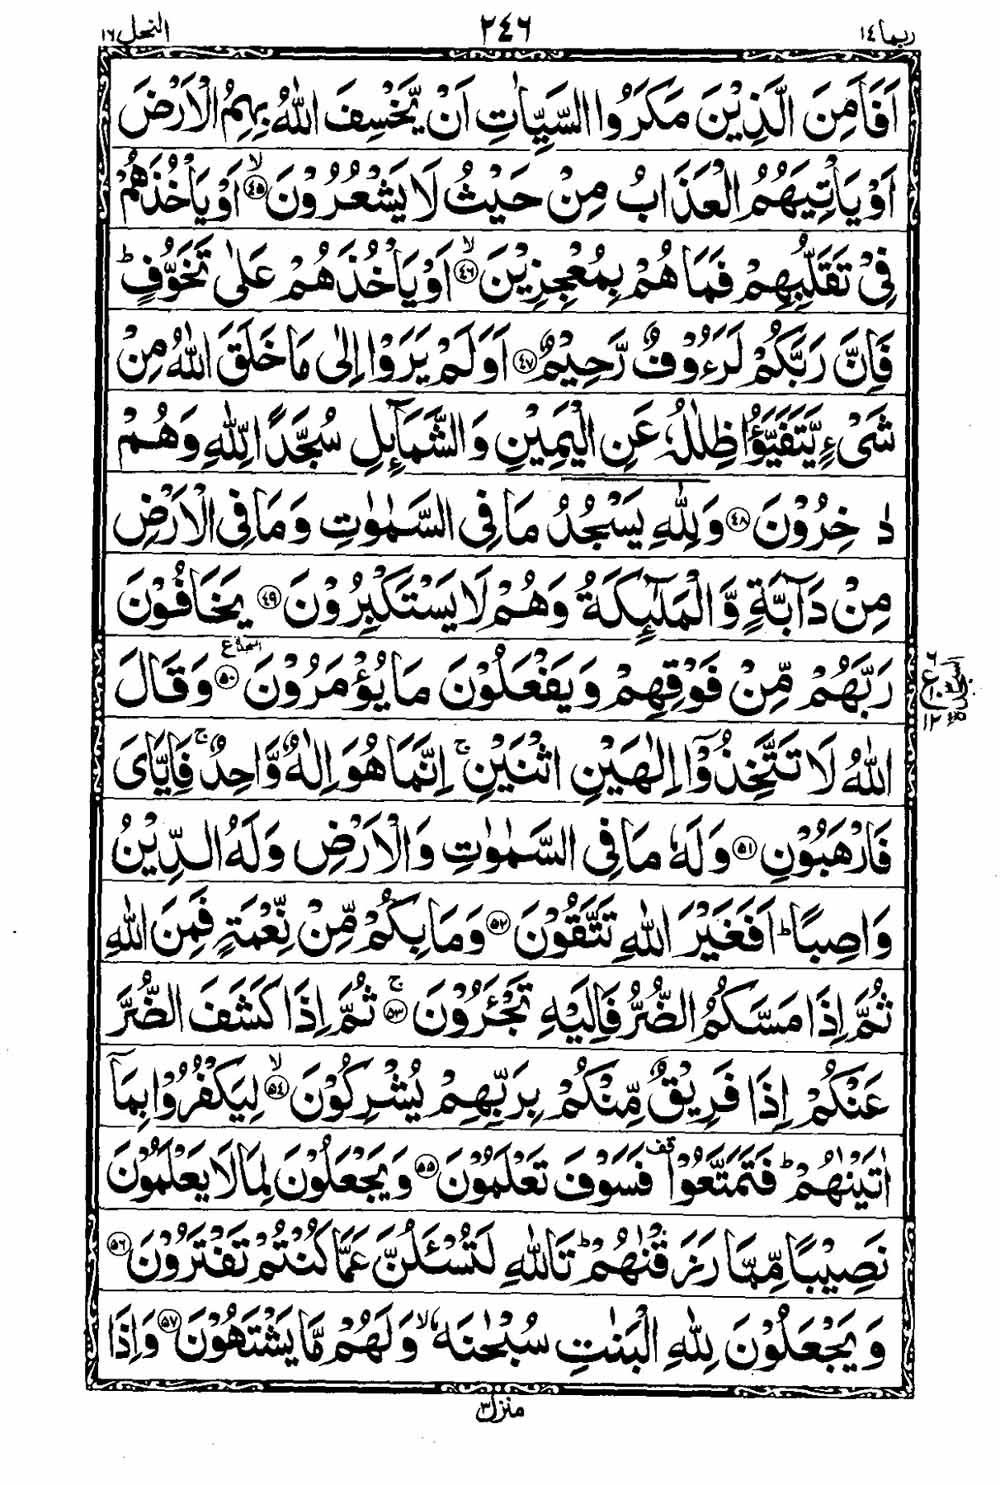 ربما ١٤
٢٤٦
النحل ١٦
اَفَاَمِنَ الَّذِيْنَ مَكَرُوا السَّيِّاٰتِ اَنْ يَّخْسِفَ اللّٰهُ بِهِمُ الْاَرْضَ
اَوْ يَاْتِيَهُمُ الْعَذَابُ مِنْ حَيْثُ لَا يَشْعُرُوْنَ ۙ۴۵ اَوْ يَاْخُذَهُمْ
فِيْ تَقَلُّبِهِمْ فَمَا هُمْ بِمُعْجِزِيْنَ ۙ۴۶ اَوْ يَاْخُذَهُمْ عَلٰى تَخَوُّفٍ ؕ
فَاِنَّ رَبَّكُمْ لَرَءُوْفٌ رَّحِيْمٌ ۴۷ اَوَلَمْ يَرَوْا اِلٰى مَا خَلَقَ اللّٰهُ مِنْ
شَيْءٍ يَّتَفَيَّؤُا ظِلٰلُهٗ عَنِ الْيَمِيْنِ وَالشَّمَآئِلِ سُجَّدًا لِّلّٰهِ وَهُمْ
دٰخِرُوْنَ ۴۸ وَلِلّٰهِ يَسْجُدُ مَا فِي السَّمٰوٰتِ وَمَا فِي الْاَرْضِ
مِنْ دَآبَّةٍ وَّالْمَلٰٓئِكَةُ وَهُمْ لَا يَسْتَكْبِرُوْنَ ۴۹ يَخَافُوْنَ
رَبَّهُمْ مِّنْ فَوْقِهِمْ وَيَفْعَلُوْنَ مَا يُؤْمَرُوْنَ ۵۰ السجدة ع وَقَالَ
السجدة ٦ ع ١٢
اللّٰهُ لَا تَتَّخِذُوْٓا اِلٰهَيْنِ اثْنَيْنِ ۚ اِنَّمَا هُوَ اِلٰهٌ وَّاحِدٌ ۚ فَاِيَّايَ
فَارْهَبُوْنِ ۵۱ وَلَهٗ مَا فِي السَّمٰوٰتِ وَالْاَرْضِ وَلَهُ الدِّيْنُ
وَاصِبًا ؕ اَفَغَيْرَ اللّٰهِ تَتَّقُوْنَ ۵۲ وَمَا بِكُمْ مِّنْ نِّعْمَةٍ فَمِنَ اللّٰهِ
ثُمَّ اِذَا مَسَّكُمُ الضُّرُّ فَاِلَيْهِ تَجْـَٔرُوْنَ ۚ۵۳ ثُمَّ اِذَا كَشَفَ الضُّرَّ
عَنْكُمْ اِذَا فَرِيْقٌ مِّنْكُمْ بِرَبِّهِمْ يُشْرِكُوْنَ ۙ۵۴ لِيَكْفُرُوْا بِمَآ
اٰتَيْنٰهُمْ ؕ فَتَمَتَّعُوْا قف فَسَوْفَ تَعْلَمُوْنَ ۵۵ وَيَجْعَلُوْنَ لِمَا لَا يَعْلَمُوْنَ
نَصِيْبًا مِّمَّا رَزَقْنٰهُمْ ؕ تَاللّٰهِ لَتُسْـَٔلُنَّ عَمَّا كُنْتُمْ تَفْتَرُوْنَ ۵۶
وَيَجْعَلُوْنَ لِلّٰهِ الْبَنٰتِ سُبْحٰنَهٗ ۙ وَلَهُمْ مَّا يَشْتَهُوْنَ ۵۷ وَاِذَا
منزل ٣